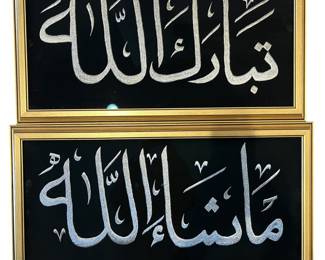 تبارك الله
ما شاء الله